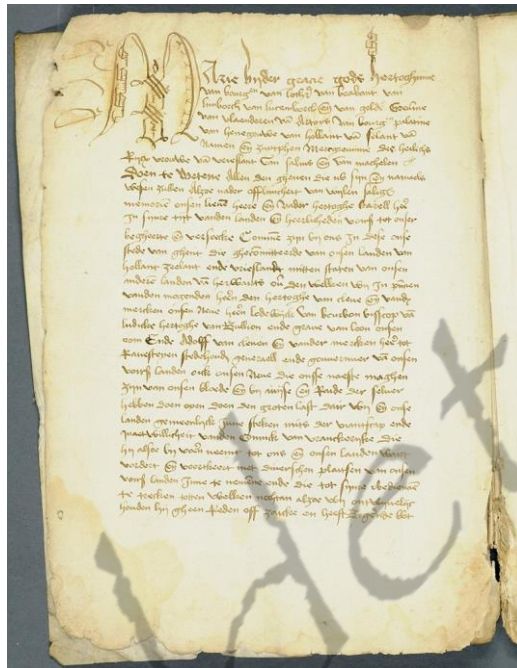 Marie bijder gracie gods Hertoghinne
van bourgen van lothr van brabant van
limborch van lucemborch en van gelre Grefinne
van vlaenderen van Artois van bourg palatine
van henegouwe van hollant van zelant van
Namen en zuytphen Mercgravinne des heilichs
Rijcx vrouwe van vrieslant van salins en van mechelen
Doen te wetene Allen den ghenen die nu sijn en namaels
wesen zullen Alzoe nader afflivicheit van wijlen saliger
memorien onsen lieven heere en vader hertoghe karell heer
In sijnre tijt vanden landen en heerlicheden voirs tot onser
begheerte en versoecke Comen zijn bij ons In dese onse
stede van ghent die ghecomitteerde van onsen landen van
hollant zeelant ende vrieslandt mitten staten van onsen
anderen landen van herwairts over den welken wij In presen
vanden mogenden heren den hertoghe van cleve en vande
mercken onsen Neve heren lodewijck van bourbon bisscop van
ludicke hertoghe van Bullion ende grave van loon onsen
oom Ende Adolff van cleven en vander mercken heere tot
Ravesteyn stedehoude generaell ende gouverneur van onsen
voirs landen oick onsen Neve die onsse naeste maghen
zijn van onsen bloede en bij avijse en Raide der selver
hebben doen open doen den groten last dair wij en onse
landen gemeenlijck Inne steken mits der viantscap ende
quaetwillicheit vanden Coninck van vranckrijcke die
hij alzoe bij voer neempt tot ons en onsen landen wart
vordert en voertkeert met diverschen plaitsen van onsen
voirs landen Inne te nemene ende die tot sijnre obediencie
te trecken totten welken nochtan alzoe wij ontwijvelic
houden hij gheen Reden off zaicke en heeft Biddende bet